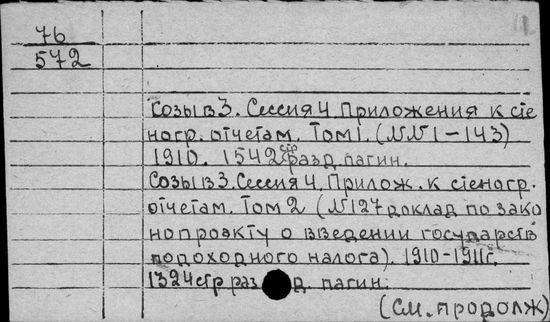 76
572
Созыв 3. Сессия 4. Приложения к сте
ногр. отчетам. Том 1. (NN 1-143)
1910. 1542 стр разд. пагин.
Созыв 3. Сессия 4. Прилож. к стеногр.
отчетам. Том 2 (N 127 доклад по зако
нопроэкту о введении государств
подоходного налога). 1910-1911г.
1324 стр разд. пагин.
(См. продолж)